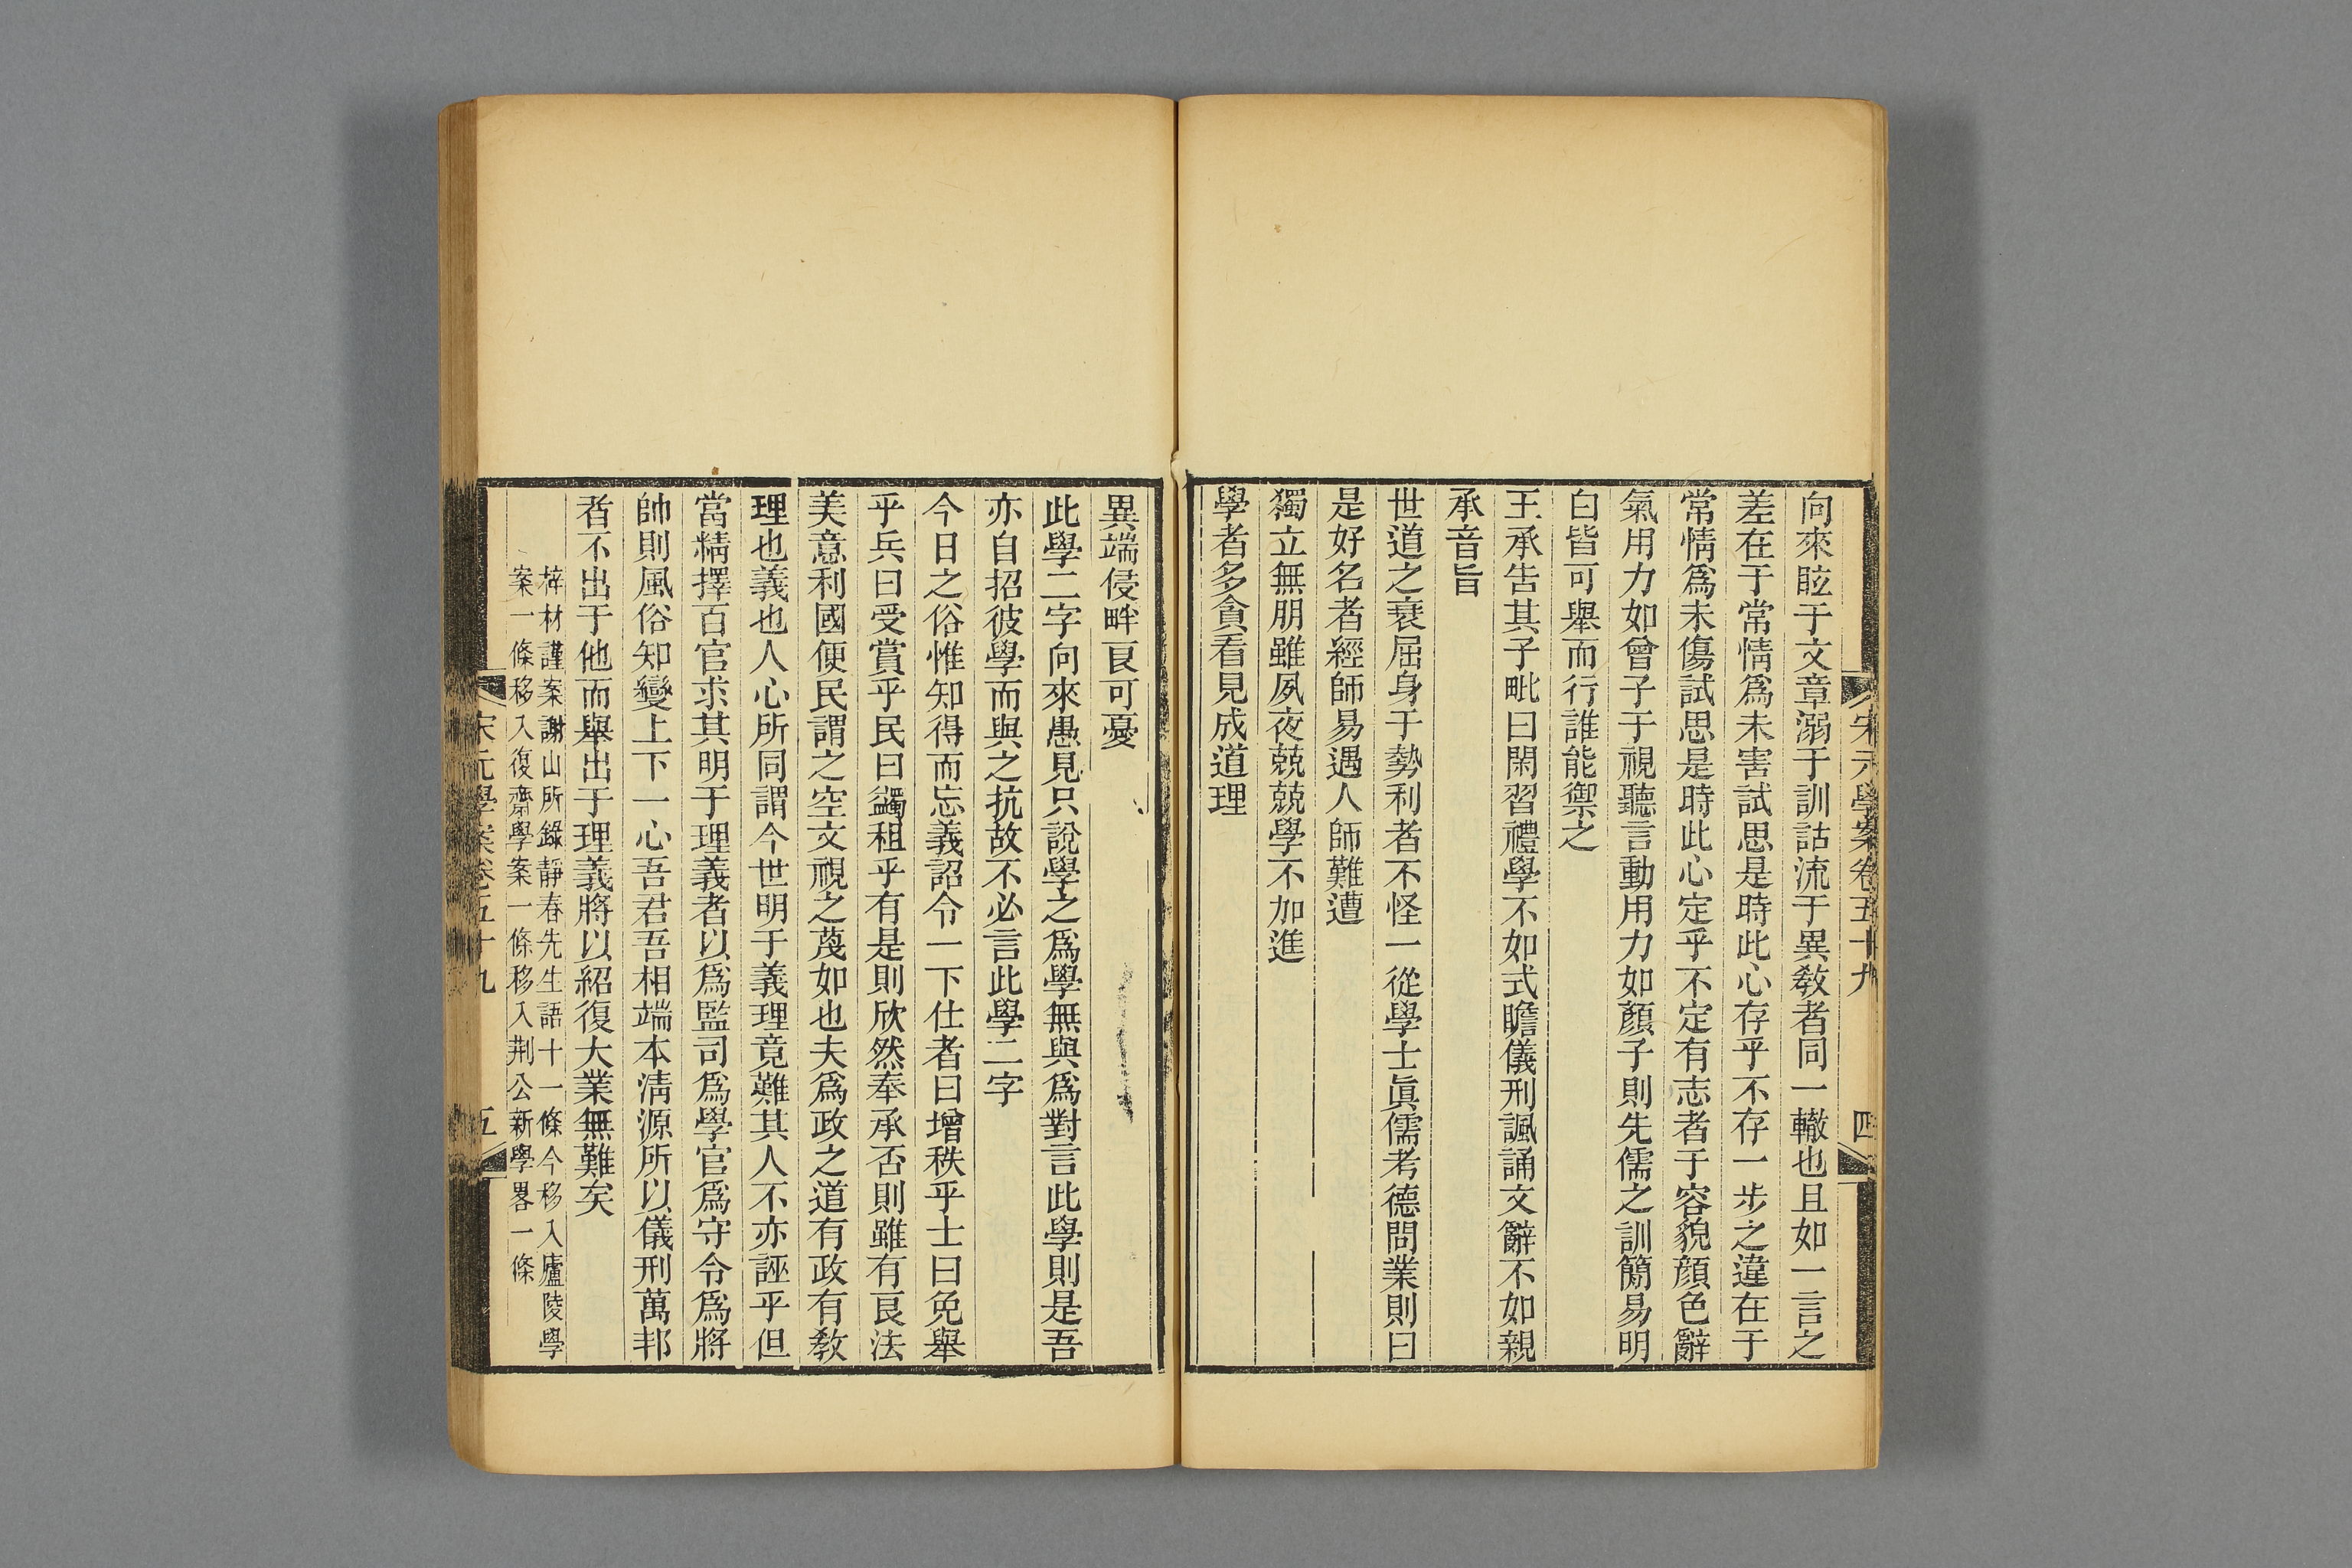 宋元學案卷五十九
四
向來眩于文章溺于訓詁流于異敎者同一轍也且如一言之
差在于常情爲未害試思是時此心存乎不存一步之違在于
常情爲未傷試思是時此心定乎不定有志者于容貌顔色辭
氣用力如曾子于視聽言動用力如顏子則先儒之訓簡易明
白皆可舉而行誰能禦之
王承告其子毗曰閑習禮學不如式瞻儀刑諷誦文辭不如親
承音旨
世道之衰屈身于勢利者不怪一從學士眞儒考德問業則曰
是好名者經師易遇人師難遭
獨立無朋雖夙夜兢兢學不加進
學者多貪看見成道理
異端侵畔良可憂
此學二字向來愚見只說學之爲學無與爲對言此學則是吾
亦自招彼學而與之抗故不必言此學二字
今日之俗惟知得而忘義詔令一下仕者曰增秩乎士曰免舉
乎兵曰受賞乎民曰蠲租乎有是則欣然奉承否則雖有良法
美意利國便民謂之空文視之蔑如也夫爲政之道有政有敎
理也義也人心所同謂今世明于義理竟難其人不亦誣乎但
當精擇百官求其明于理義者以爲監司爲學官爲守令爲將
帥則風俗知變上下一心吾君吾相端本淸源所以儀刑萬邦
者不出于他而舉出于理義將以紹復大業無難矣
梓材謹案謝山所錄靜春先生語十一條今移入廬陵學
案一條移入復齋學案一條移入荆公新學畧一條
宋元學案卷五十九
五